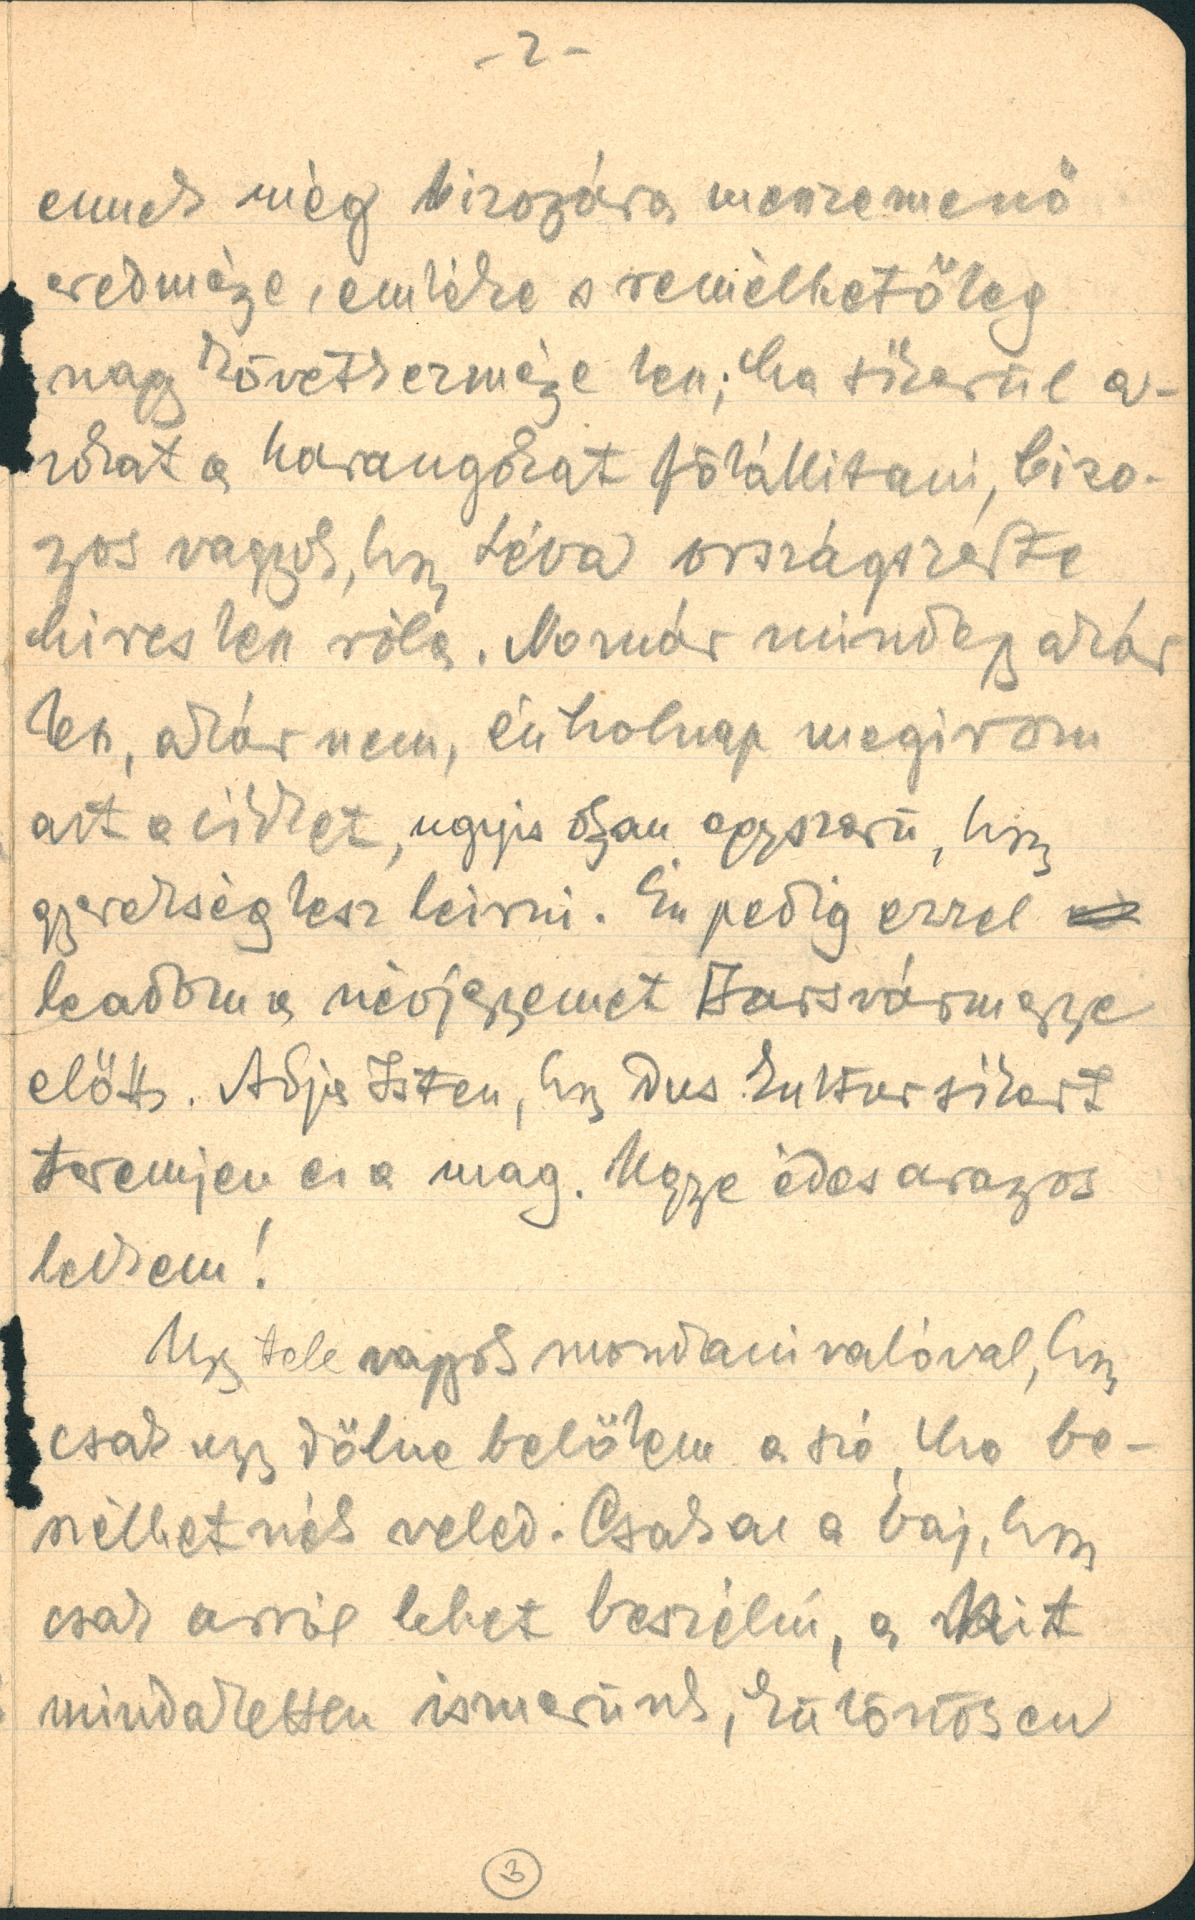 - 2 -
ennek még bizonyára messzemenő
eredménye, emléke s remélhetőleg
nagy következménye lesz; ha sikerül a-
zokat a harangokat fölállitani, bizo-
nyos vagyok, hogy Léva országszerte
hires lesz róla. No már mindegy akár
lesz, akár nem, én holnap megirom
azt a cikket, ugyis olyan egyszerű, hogy
gyerekség lesz leirni. Én pedig ezzel
leadom a névjegyemet Barsvármegye
előtt. Adja Isten, hogy dus kultursikert
teremjen ez a mag. Ugye édes aranyos
lelkem!
Ugy tele vagyok mondanivalóval, hogy
csak ugy dőlne belőlem a szó, ha be-
szélhetnék veled. Csak az a baj, hogy
csak arról lehet beszélni, a kit
mindaketten ismerünk, különösen
3